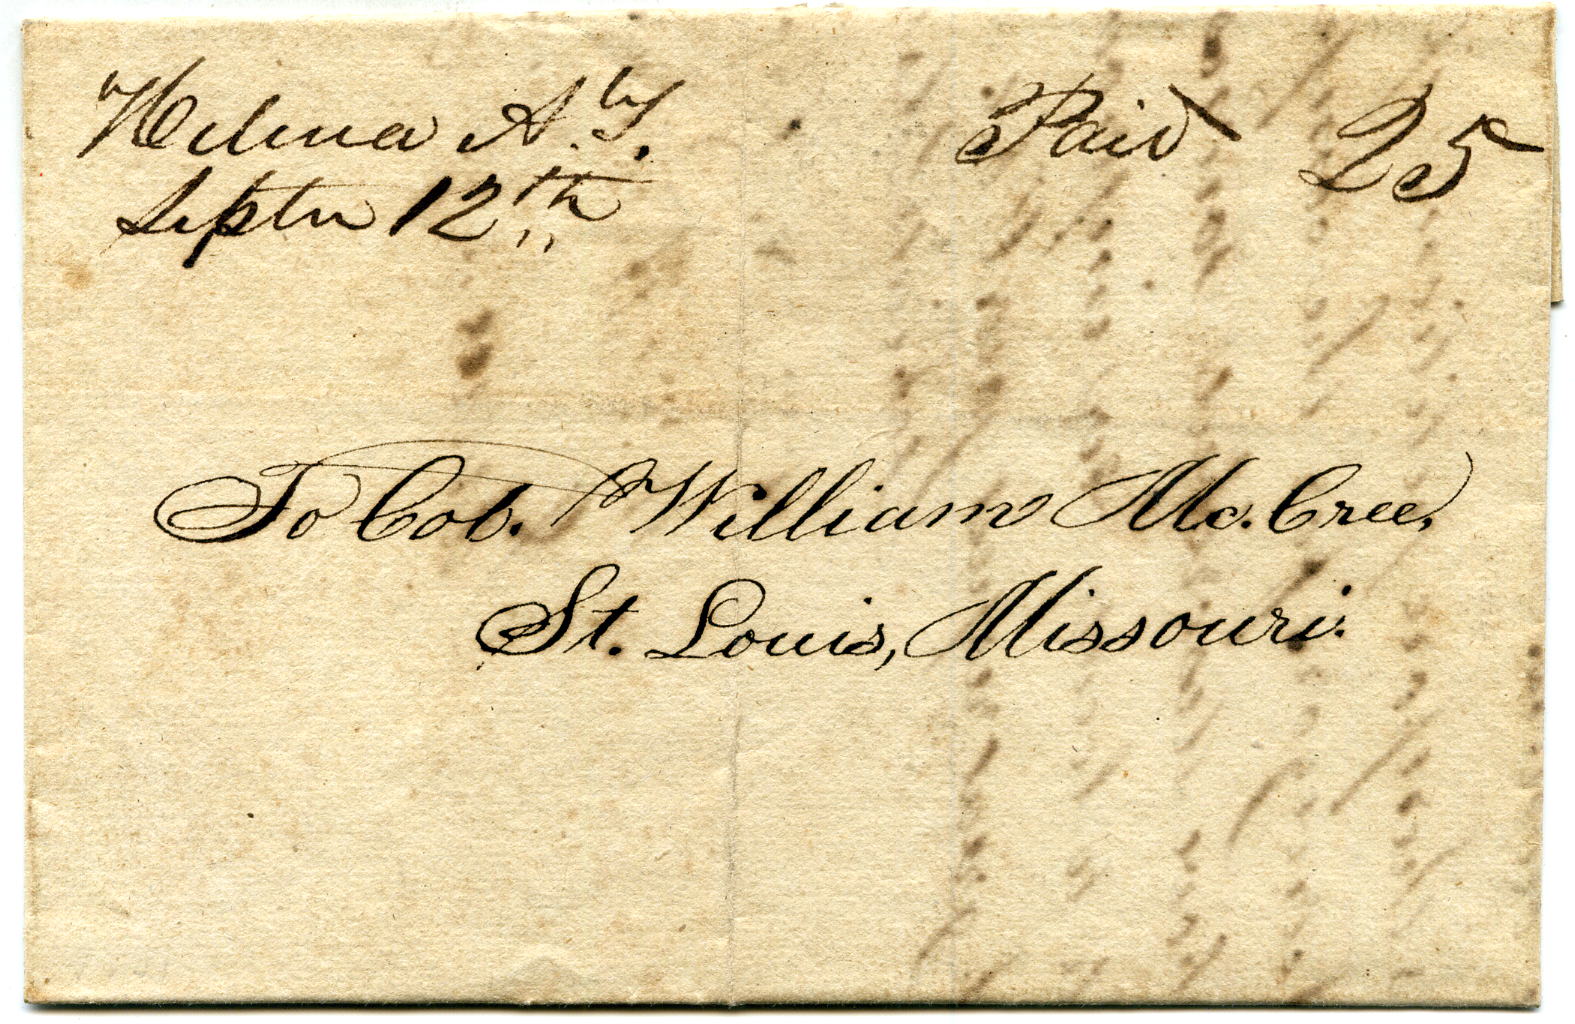 Helena A.Ty.
Septr 12th
Paid 25
To Col. William Mc.Cree,
St. Louis, Missouri.